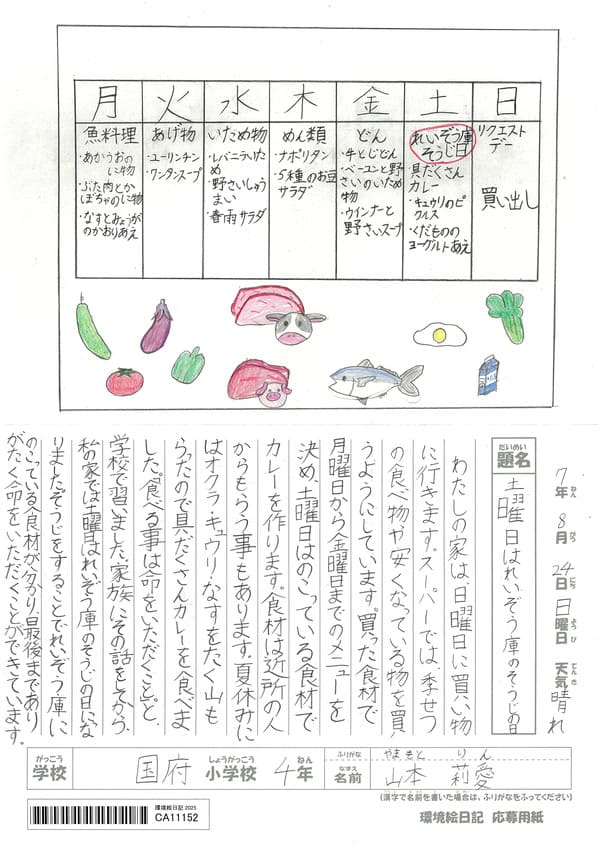 月
魚料理
・あかうおの
に物
・ぶた肉とか
ぼちゃのに物
・なすとみょうが
のかおりあえ
火
あげ物
・ユーリンチン
・ワンタンスープ
水
いため物
・レバニラいた
め
・野さいしゅう
まい
・春雨サラダ
木
めん類
・ナポリタン
・5種のお豆
サラダ
金
どん
・牛とじどん
・ベーコンと野
さいのいため
物
・ウインナーと
野さいスープ
土
れいぞう庫
そうじ日
・具だくさん
カレー
・キュウリのピ
クルス
・くだものの
ヨーグルトあえ
日
リクエスト
デー
買い出し
7年ねん8月がつ24日にち日曜日ようび天気てんき晴れ
だいめい
題名
土曜日はれいぞう庫のそうじの日
わたしの家は、日曜日に買い物
に行きます。スーパーでは、季せつ
の食べ物や安くなっている物を買
うようにしています。買った食材で
月曜日から金曜日までのメニューを
決め、土曜日はのこっている食材で
カレーを作ります。食材は近所の人
からもらう事もあります。夏休みに
はオクラ・キュウリ・なすをたく山も
らったので具だくさんカレーを食べま
した。「食べる事は命をいただくこと」と、
学校で習いました。家族にその話をしてから、
私の家では土曜日はれいぞう庫のそうじの日にな
りました。そうじをすることでれいぞう庫に
のこっている食材が分かり、最後まであり
がたく命をいただくことができています。
がっこう しょうがっこう ねん ふりがな やまもと りん
学校 国府 小学校 4年 なまえ 名前 山本 莉愛
(漢字で名前を書いた場合は、ふりがなをふってください)
環境絵日記 2025
CA11152
環境絵日記 応募用紙